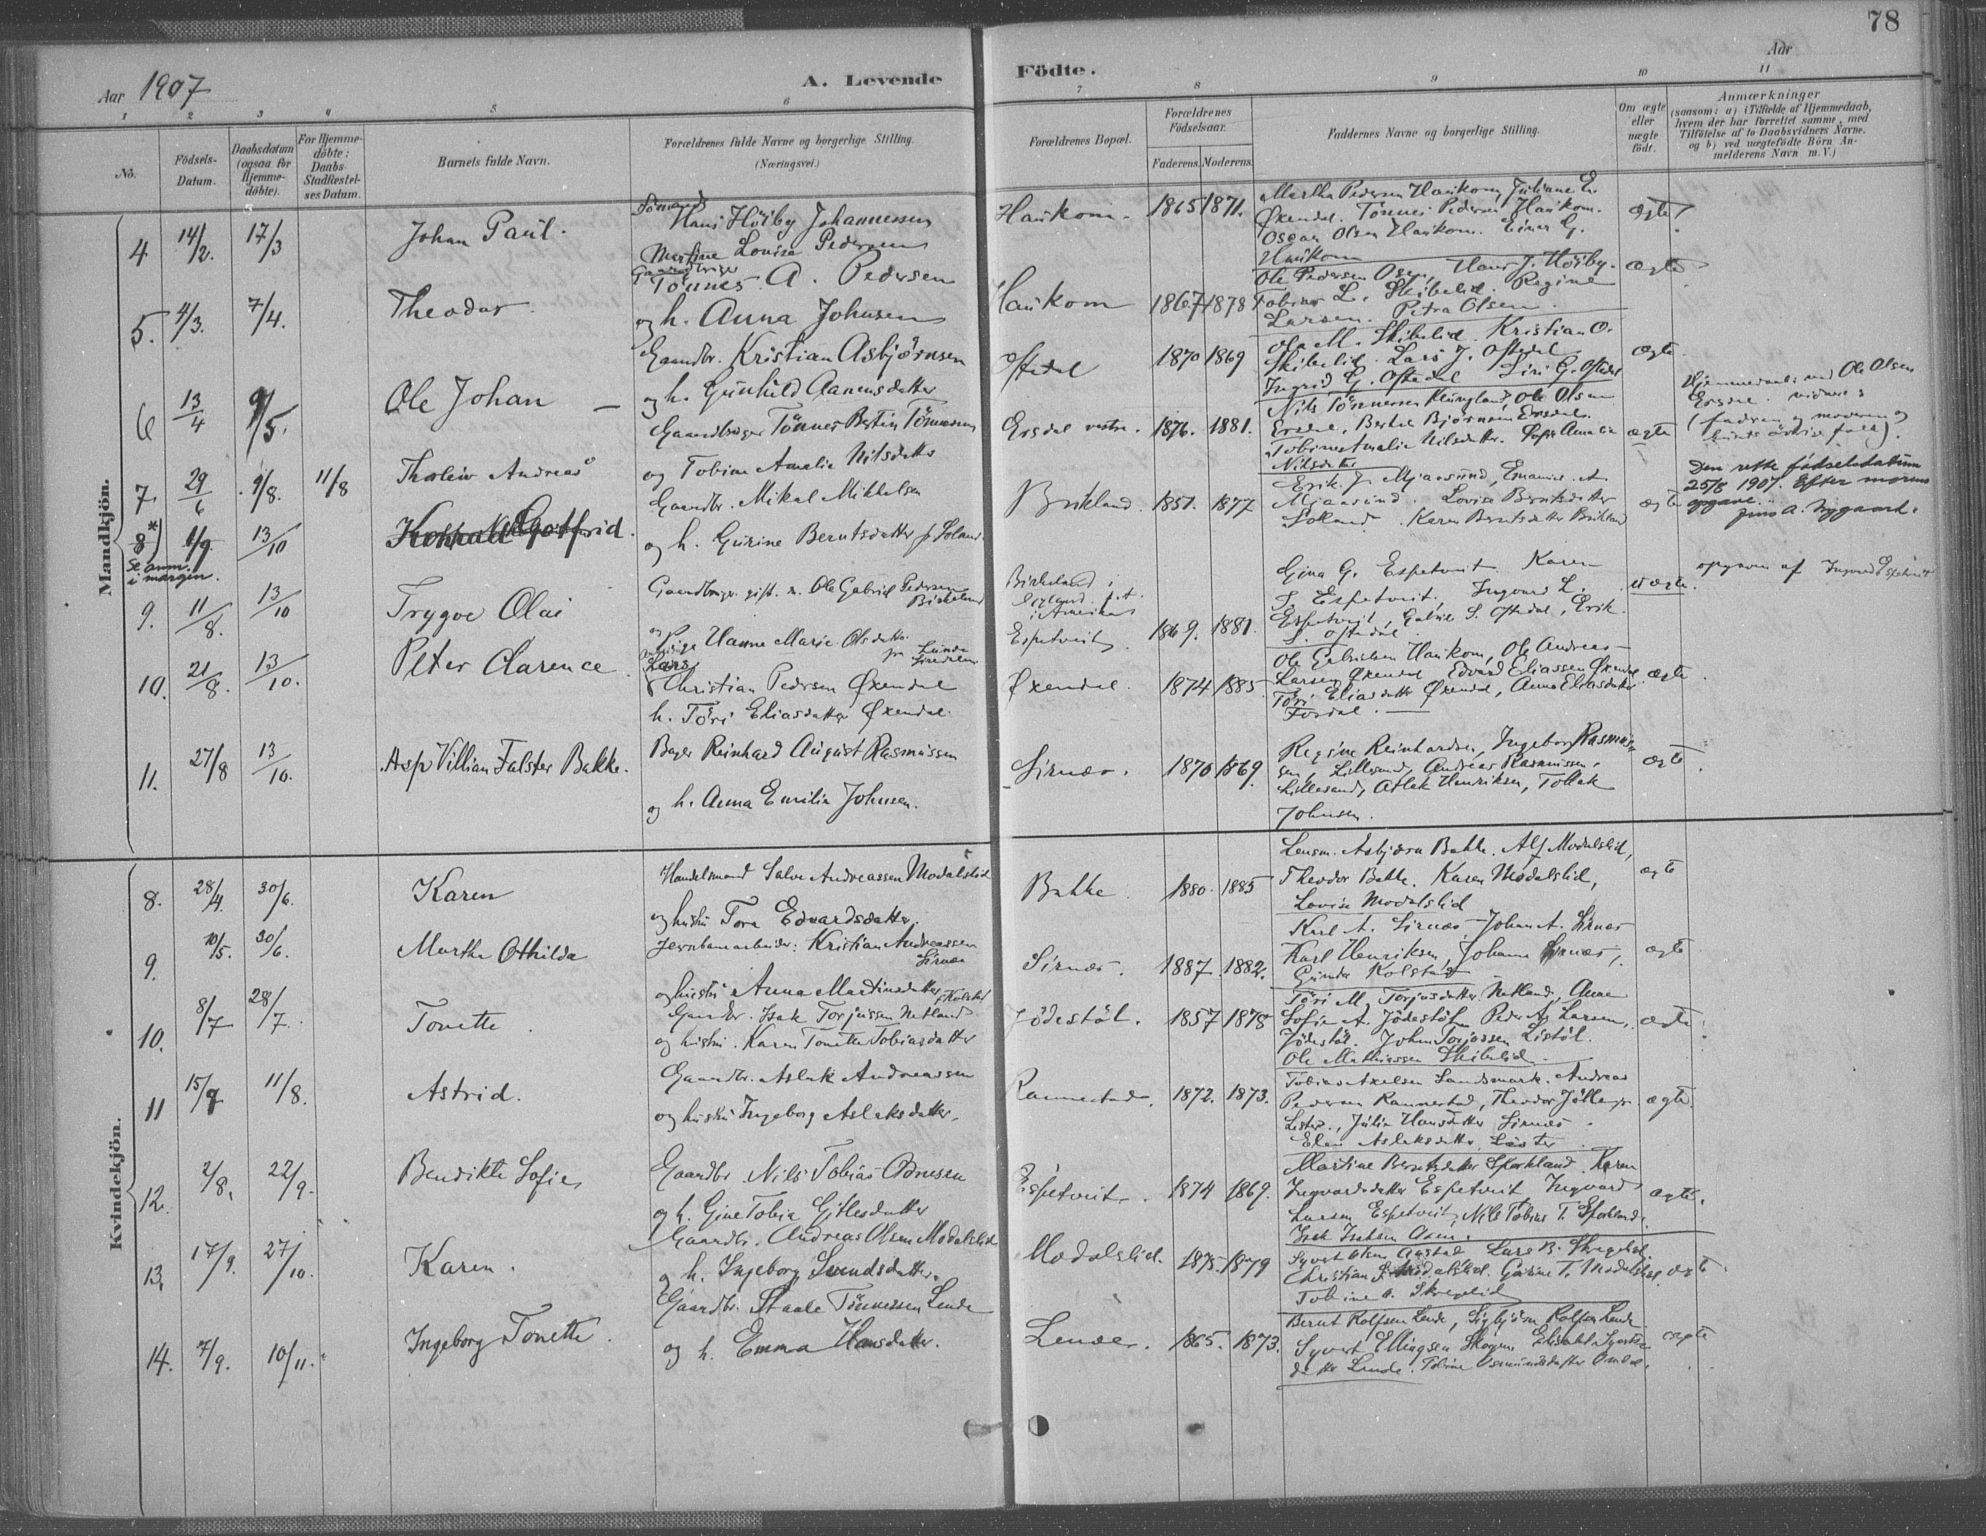 78
Aar 1907
A. Levende Födte.
Aar
1 2 3 4 5 6 7 8 9 10 11
No.
Födsels-Datum.
Daabsdatum (ogsaa for Hjemme-döbte).
For Hjemme-döbte: Daabs Stadfæstel-ses Datum.
Barnets fulde Navn.
Forældrenes fulde Navne og borgerlige Stilling. (Næringsvei.)
Forældrenes Bopæl.
Forældrenes Födselsaar.
Faderens. Moderens.
Faddernes Navne og borgerlige Stilling.
Om ægte eller uægte födt.
Anmærkninger
(saasom: a) i Tilfælde af Hjemmedaab,
hvem der har forrettet samme, med
Tilföielse af to Daabsvidners Navne.
og b) ved uægtefödte Börn An-
melderens Navn m. V.)
Mandkjön.
4 14/2. 17/3 Johan Paul.
Hans Höiby Johannessen
Martine Louise Pedersen
Haukom. 1865 1871.
Martha Pedersen Haukom, Juliane E.
Øxendal. Tönnes Pedersen Haukom.
Oscar Olsen Haukom. Einar G.
Haukom
ægte
5. 4/3. 7/4. Theodor.
Gaardbruger
Tönnes A. Pedersen
og h. Anna Johnsen
Haukom 1867 1878
Ole Pedersen Osen, Hans J. Höiby.
Tobias L. Skibelid. Regine
Larsen. Petra Olsen
ægte
6 13/4 9/5. Ole Johan
Gaardbr. Kristian Asbjørnsen
og h. Gunhild Aanensdatter
Oftedal 1870 1869
Ole M. Skibelid. Kristian O.
Skibelid. Lars J. Oftedal
Ingrid G. Oftedal Siri G. Oftedal
ægte.
7. 29/6 9/8. 11/8 Thorleiv Andreas
Gaardbruger Tönnes Bertin Tönnessen
og Tobine Amalie Nilsdatter
Ersdal vestre. 1876. 1881.
Nils Tönnessen Ole Olsen
Ersdal, Bertel Bjørnsen Ersdal.
Tobine Amalie Nilsdatter. Sofie Amalie
Nilsdatter
ægte
Hjemmedøbt ved Ole Olsen
Ersdal. vidner:
(faderen og moderen og
8*) 1/9. 13/10 Konrad Gotfrid.
Se anm. i margen.
Gaardbr. Mikal Mikkelsen
og h. Gurine Berntsdatter
Birkland. 1851. 1877
Erik J. Mjaasund, A.
Mjaasund. Lovise Berntsdatter
Karen Berntsdatter Birkland
ægte
Den rette födselsdatum
25/8 1907. Efter morens
opgave.
Jens A. Nygaard.
9. 11/8. 13/10 Trygve Olai
Gaardbruger gift. m. Ole Gabriel Pedersen
Birkeland
og pige Hanne Marie Olsdatter
Birkeland i
i Amerika
Espetveit 1869. 1881.
Gina G. Espetveit Karen
S. Espetveit. Ingvard L.
Espetveit, Gabriel S. Oftedal, Erik
L. Oftedal
uægte.
opgaven af Ingvard Espetveit
10. 21/8. 13/10. Peter Clarence
Lars
Christian Pedersen Øxendal
h. Töri Eliasdatter Øxendal.
Øxendal. 1874 1885
Ole Gabrielsen Haukom, Ole Andreas
Larsen Øxendal Edvard Eliassen Øxendal
Töri Eliasdatter Øxendal, Anna Eliasdatter
ægte
11. 27/8 13/10. Asp Villian Falster Bakke.
Bager Reinhard August Rasmussen
og h. Anna Emilie Johnsen.
Sirnæs. 1870 1869.
Regine Reinhardsen, Ingeborg Rasmus-
sen, Lillesand, Andreas Rasmussen.
Lillesand, Aslak Henriksen, Tollak
Johnsen.
ægte
Kvindekjön.
8. 28/4. 30/6. Karen
Handelsmand Salve Andreassen Modalslid
og hustru Tora Edvardsdatter.
Bakke 1880. 1885
Lensm. Asbjørn Bakke. Alf Modalslid,
Theodor Bakke. Karen Modalslid,
Lovise Modalslid
ægte
9. 10/5. 30/6. Martha Othilde
Jernbanearbeider: Kristian Andreassen
Sirnæs
og hustru Anna Martinsdatter
Sirnæs. 1887 1882.
Karl A. Sirnæs, Johan A. Sirnæs
Karl Henriksen, Johanne Sirnæs,
Gunda Kolstad
ægte
10. 8/7 28/7. Tonette
Gaardbr. Isak Torjussen Netland
og hustru. Karen Tonette Tobiasdatter
Jödestöl. 1857 1878
Töri M. Torjusdatter Netland, Anne
Sofie A. Jödestöl Peder A. Larsen,
Jödestöl. John Torjussen Listöl.
Ole Mathiassen Skibelid
ægte
11 15/7 11/8. Astrid.
Gaardbr. Aslak Andreassen
og hustru Ingeborg Aslaksdatter.
Rannestad. 1872. 1873.
Tobias Axelsen Landsmark. Andreas
Pedersen Rannestad, Theodor
Lister., Julie Hansdatter Sirnæs
Elen Aslaksdatter Lister
ægte.
12. 2/8. 22/9. Bendikte Sofie
Gaardbr. Nils Tobias
og h. Gine Tobia Gitlesdatter
Espetveit. 1874 1869.
Martine Berntsdatter Karen
Ingvardsdatter Espetveit Ingvard
Larsen Espetveit, Nils Tobias T.
Isak Isaksen Osen.
ægte.
13. 17/9. 27/10. Karen.
Gaardbr. Andreas Olsen Modalslid
og h. Ingeborg Svendsdatter.
Modalslid. 1875. 1879
Syvert Olsen Lars B. Skregelid.
Christian S. Modalslid. Gurine T. Modalslid.
Tobine A. Skregelid
ægte
14. 7/9. 10/11. Ingeborg Tonette.
Gaardbr. Staale Tönnessen Lende
og h. Emma Hansdatter.
Lende. 1865. 1873.
Bernt Rolfsen Lende, Sigbjörn Rolfsen Lende
Syvert Ellingsen Skogen Elisabet Syverts-
datter Lende. Tobine Osmundsdatter Omdal.
ægte